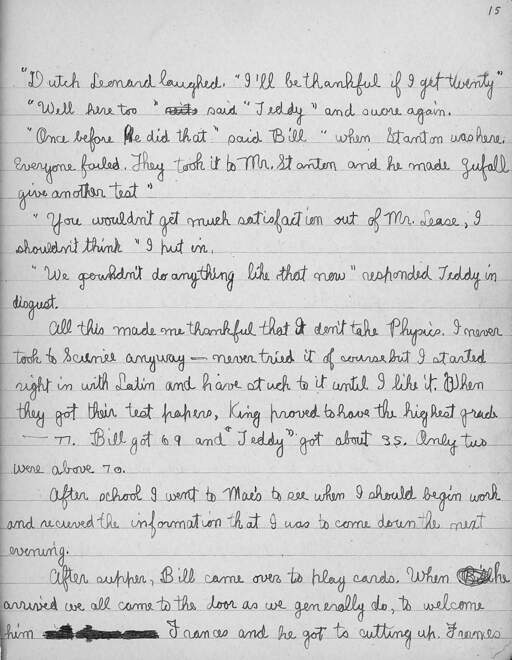 15
"Dutch Leonard laughed. "I'll be thankful if I get twenty"
"Well here too" said "Teddy" and swore again.
"Once before he did that" said Bill "when Stanton was here.
Everyone failed. They took it to Mr. Stanton and he made Zufall
give another test"
"You wouldn't get much satisfaction out of Mr. Lease, I
shouldn't think" I put in.
"We couldn't do anything like that now" responded Teddy in
disgust.
All this made me thankful that I don't take Physics. I never
took to Science anyway — never tried it of course but I started
right in with Latin and have stuck to it until I like it. When
they got their test papers, King proved to have the highest grade
— 77. Bill got 69 and "Teddy" got about 35. Only two
were above 70.
After school I went to Mae's to see when I should begin work
and recieved the information that I was to come down the next
evening.
After supper, Bill came over to play cards. When he
arrived we all came to the door as we generally do, to welcome
him Frances and he got to cutting up. Frances